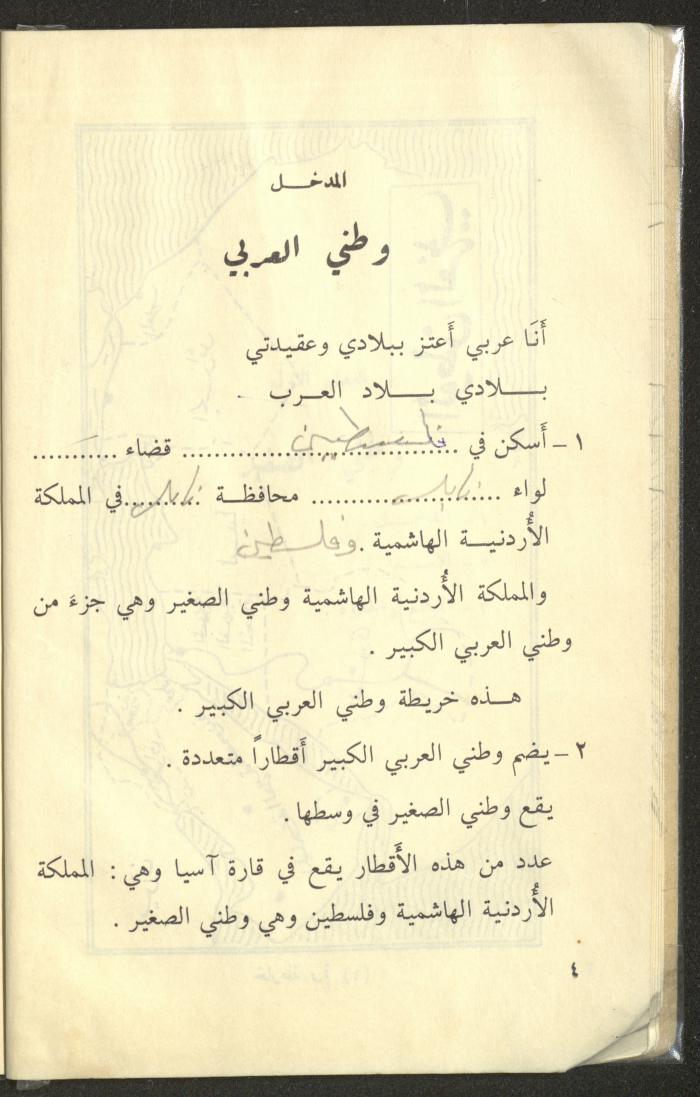 المدخـــل
وطني العربي
أَنَا عربي أَعتز ببلادي وعقيدتي
بـــلادي بـــلاد العـرب .
١ ـ أَسكن في .... فلسطين .... قضاء ...........
لواء .... نابلس .... محافظــة .... نابلس .... في المملكة
الأُردنيـــة الهاشمية . وفلسطين
والمملكة الأُردنية الهاشمية وطني الصغير وهي جزءَ من
وطني العربي الكبير .
هـــذه خريطة وطني العربي الكبير .
٢ ـ يضم وطني العربي الكبير أَقطاراً متعددة .
يقع وطني الصغير في وسطها .
عدد من هذه الأَقطار يقع في قارة آسيا وهي : المملكة
الأُردنية الهاشمية وفلسطين وهي وطني الصغير .
٤